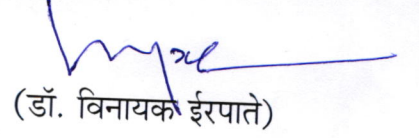 (डॉ. विनायक ईरपाते)